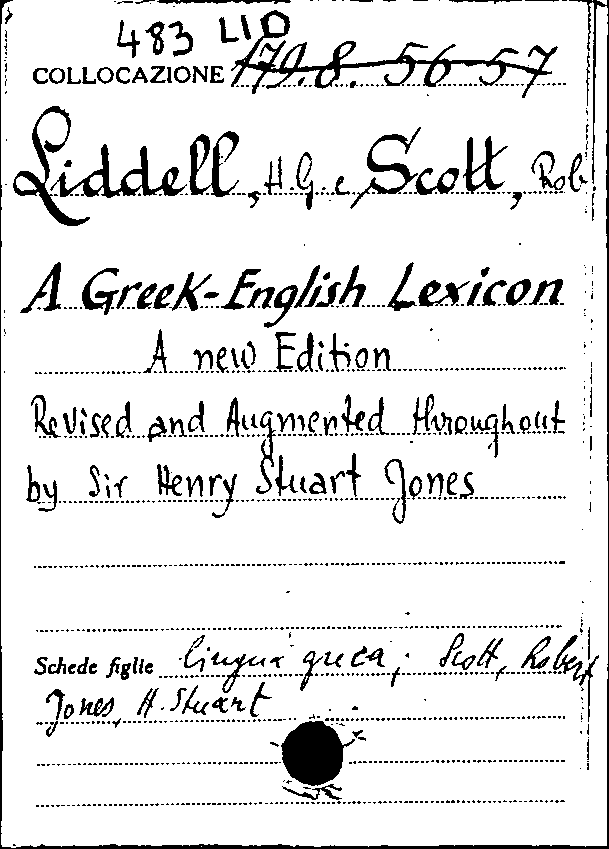 483 LID
COLLOCAZIONE 179.8.56-57
Liddell, H.G. e Scott, Rob
A Greek-English Lexicon
A new Edition
Revised and Augmented throughout
by Sir Henry Stuart Jones
Schede figlie lingua greca; Scott, Robert
Jones, H. Stuart